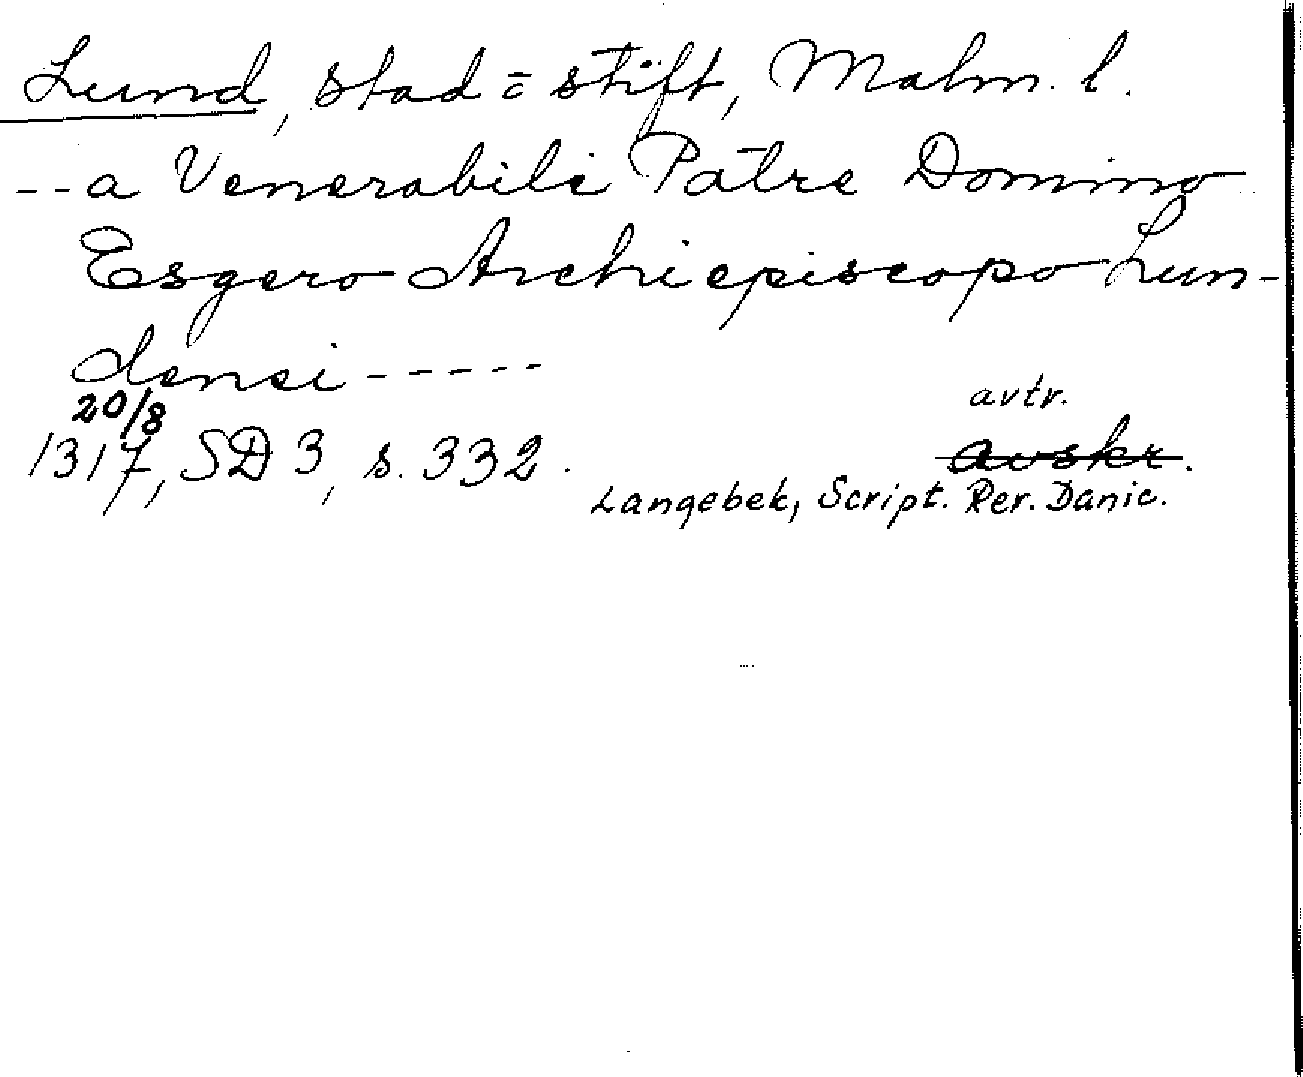 Lund, stad = stift, Malm. l.
-- a Venerabili Patre Domino
Esgero Archiepiscopo Lun-
densi -----
20/8
avtr.
1317, SD 3, s. 332. avskr.
Langebek, Script. Rer. Danic.